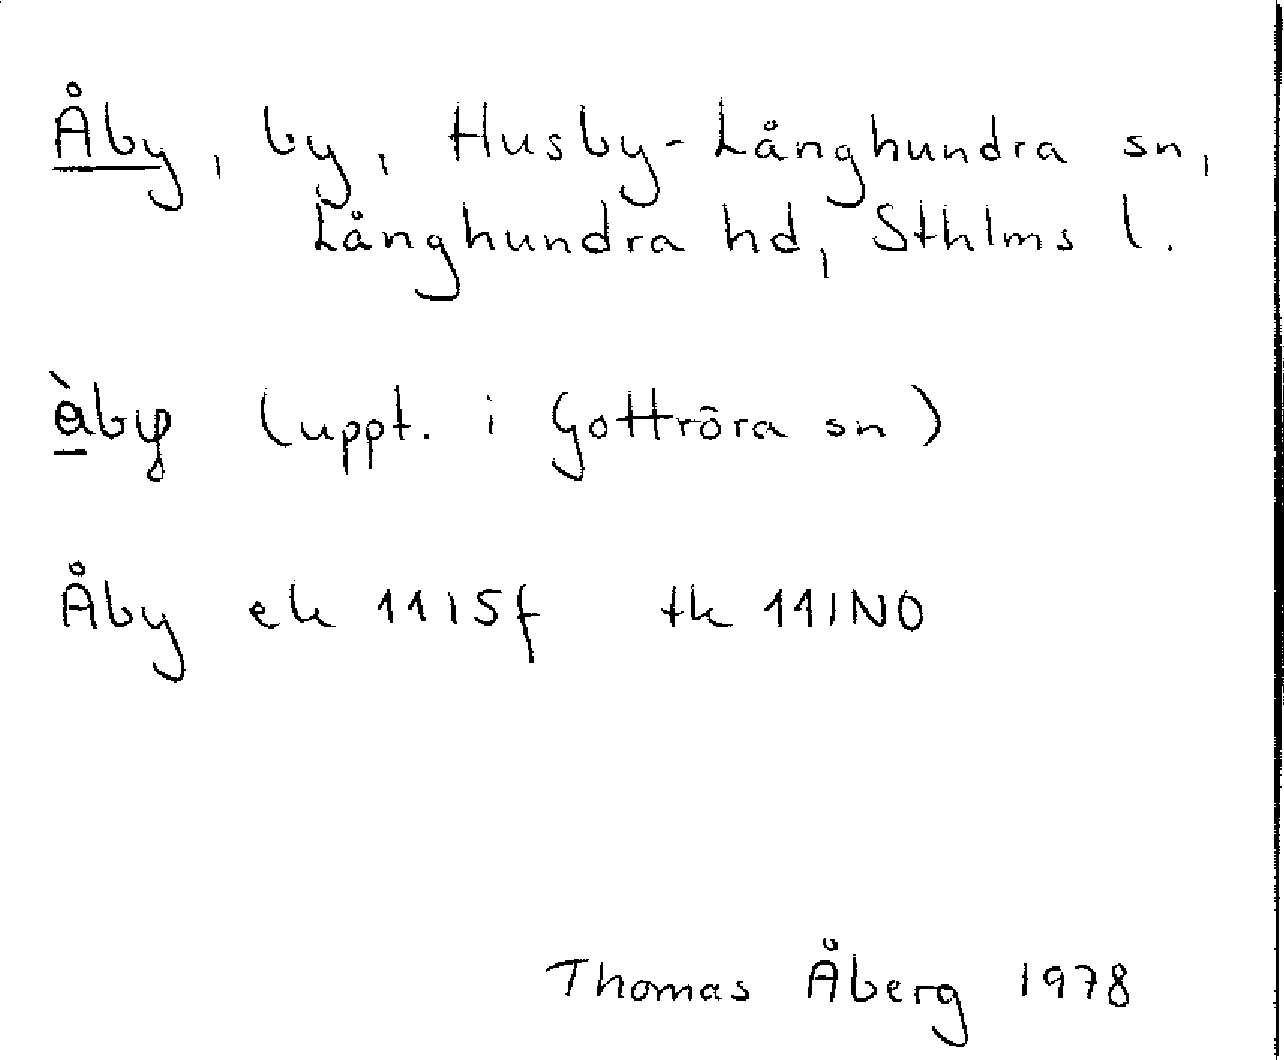 Åby, by, Husby-Långhundra sn,
Långhundra hd, Sthlms l.
(uppt. i Gottröra sn)
Åby ek 11I5f tk 11INO
Thomas Åberg 1978